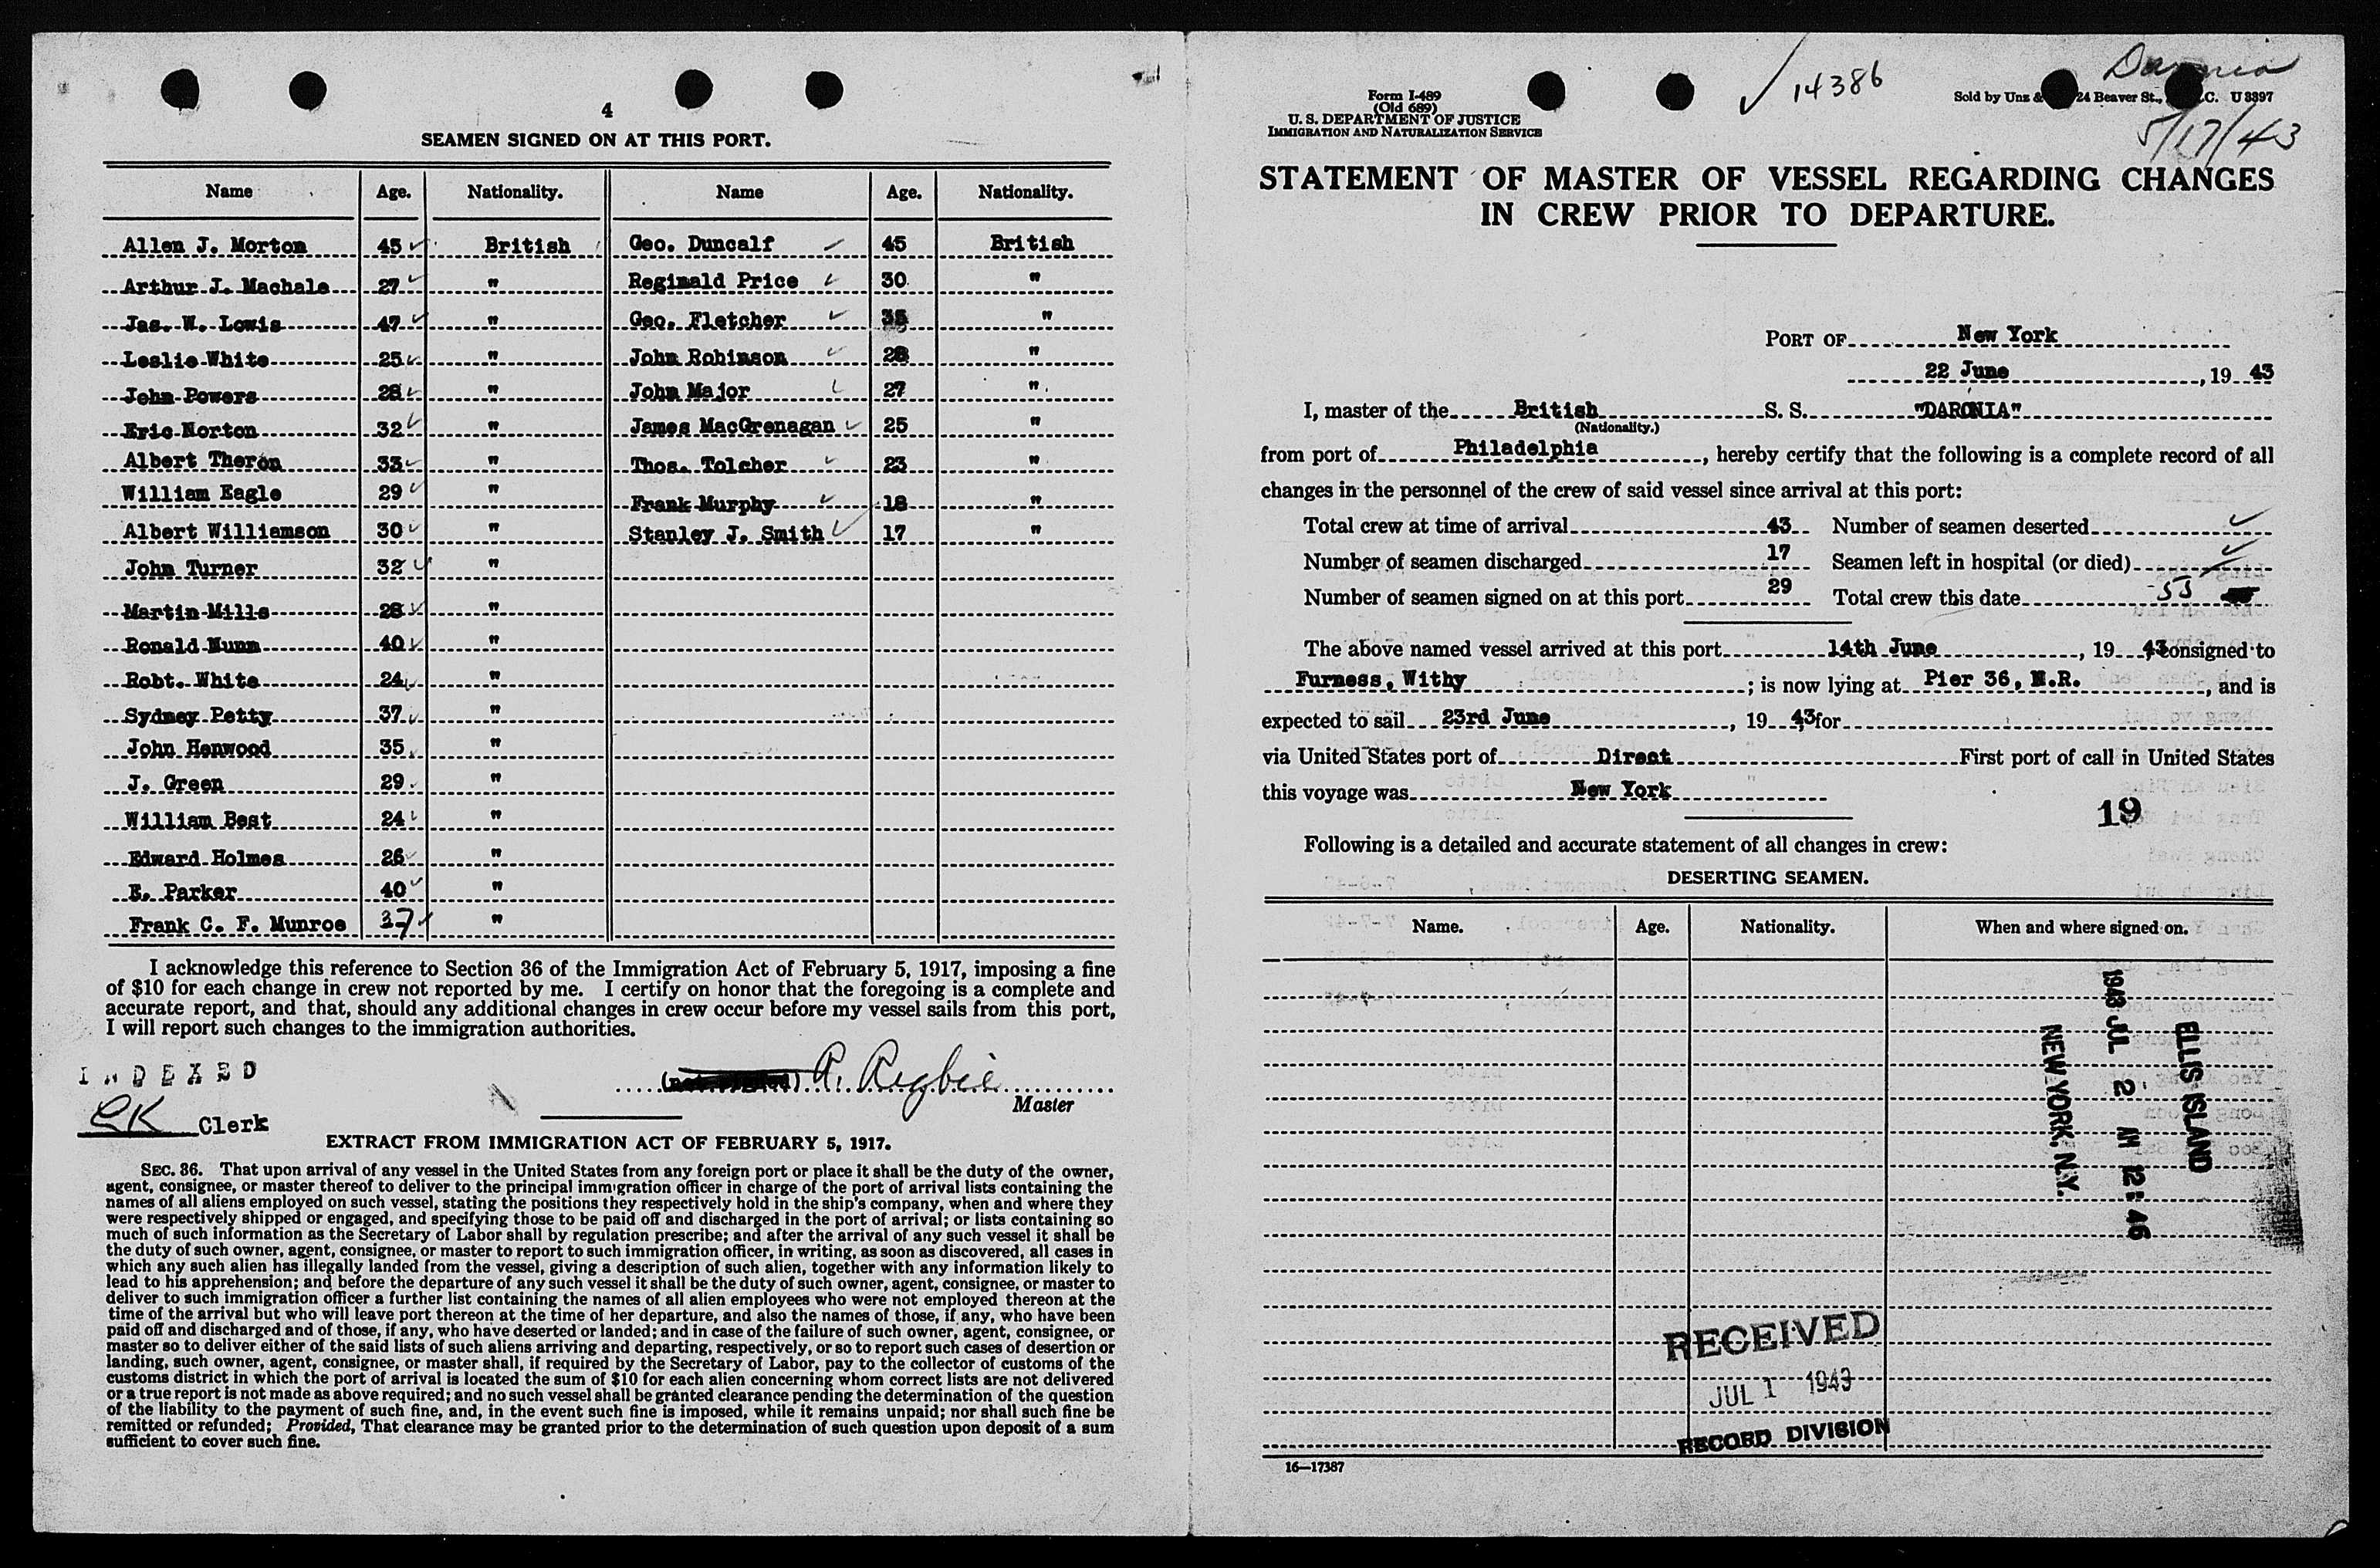 4
SEAMEN SIGNED ON AT THIS PORT.
Name Age. Nationality. Name Age. Nationality.
Allen J. Morton 45 British Geo. Duncalf 45 British
Arthur J. Machale 27 " Reginald Price 30 "
Jas. W. Lowis 47 " Geo. Fletcher "
Leslie White 25 " John Robinson 28 "
John Powers 28 " John Major 27 "
Eric Norton 32 " James MacGrenagan 25 "
Albert Theron 33 " Thos. Tolcher 23 "
William Eagle 29 " Frank Murphy 18 "
Albert Williamson 30 " Stanley J. Smith 17 "
John Turner 32 "
Martin Mills 28 "
Ronald Nunn 40 "
Robt. White 24 "
Sydney Petty 37 "
John Henwood 35 "
J. Green 29 "
William Best 24 "
Edward Holmes 26 "
E. Parker 40 "
Frank C. F. Munroe 37 "
I acknowledge this reference to Section 36 of the Immigration Act of February 5, 1917, imposing a fine
of $10 for each change in crew not reported by me. I certify on honor that the foregoing is a complete and
accurate report, and that, should any additional changes in crew occur before my vessel sails from this port,
I will report such changes to the immigration authorities.
INDEXED
R. Rigbie
Master
CK Clerk
EXTRACT FROM IMMIGRATION ACT OF FEBRUARY 5, 1917.
SEC. 36. That upon arrival of any vessel in the United States from any foreign port or place it shall be the duty of the owner,
agent, consignee, or master thereof to deliver to the principal immigration officer in charge of the port of arrival lists containing the
names of all aliens employed on such vessel, stating the positions they respectively hold in the ship's company, when and where they
were respectively shipped or engaged, and specifying those to be paid off and discharged in the port of arrival; or lists containing so
much of such information as the Secretary of Labor shall by regulation prescribe; and after the arrival of any such vessel it shall be
the duty of such owner, agent, consignee, or master to report to such immigration officer, in writing, as soon as discovered, all cases in
which any such alien has illegally landed from the vessel, giving a description of such alien, together with any information likely to
lead to his apprehension; and before the departure of any such vessel it shall be the duty of such owner, agent, consignee, or master to
deliver to such immigration officer a further list containing the names of all alien employees who were not employed thereon at the
time of the arrival but who will leave port thereon at the time of her departure, and also the names of those, if any, who have been
paid off and discharged and of those, if any, who have deserted or landed; and in case of the failure of such owner, agent, consignee, or
master so to deliver either of the said lists of such aliens arriving and departing, respectively, or so to report such cases of desertion or
landing, such owner, agent, consignee, or master shall, if required by the Secretary of Labor, pay to the collector of customs of the
customs district in which the port of arrival is located the sum of $10 for each alien concerning whom correct lists are not delivered
or a true report is not made as above required; and no such vessel shall be granted clearance pending the determination of the question
of the liability to the payment of such fine, and, in the event such fine is imposed, while it remains unpaid; nor shall such fine be
remitted or refunded; Provided, That clearance may be granted prior to the determination of such question upon deposit of a sum
sufficient to cover such fine.
Form I-489
(Old 689)
U. S. DEPARTMENT OF JUSTICE
IMMIGRATION AND NATURALIZATION SERVICE
14386
Sold by Unz & 24 Beaver St., C. U 8397
5/17/43
STATEMENT OF MASTER OF VESSEL REGARDING CHANGES
IN CREW PRIOR TO DEPARTURE.
PORT OF New York
22 June, 19 43
I, master of the British S. S. "DARONIA"
(Nationality.)
from port of Philadelphia, hereby certify that the following is a complete record of all
changes in the personnel of the crew of said vessel since arrival at this port:
Total crew at time of arrival 43 Number of seamen deserted
Number of seamen discharged 17 Seamen left in hospital (or died)
Number of seamen signed on at this port 29 Total crew this date 55
The above named vessel arrived at this port 14th June, 19 43 consigned to
Furness, Withy; is now lying at Pier 36, N.R., and is
expected to sail 23rd June, 19 43 for
via United States port of Direct First port of call in United States
this voyage was New York
19
Following is a detailed and accurate statement of all changes in crew:
DESERTING SEAMEN.
Name. Age. Nationality. When and where signed on.
ELLIS ISLAND
1943 JUL 2 AM 12:46
NEW YORK, N.Y.
RECEIVED
JUL 1 1943
RECORD DIVISION
16—17387